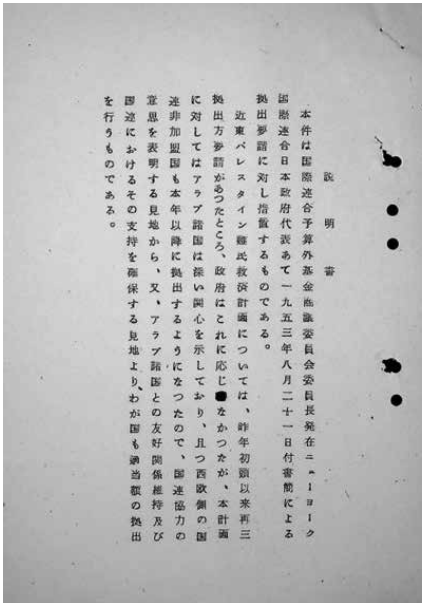 説明書
本件は国際連合予算外基金商議委員会委員長発在ニューヨーク
国際連合日本政府代表あて一九五三年八月二十一日付書簡による
拠出要請に対し措置するものである。
近東パレスタイン難民救済計画については、昨年初頭以来再三
拠出方要請があつたところ、政府はこれに応じなかつたが、本計画
に対してはアラブ諸国は深い関心を示しており、且つ西欧側の国
連非加盟国も本年以降に拠出するようになつたので、国連協力の
意思を表明する見地から、又、アラブ諸国との友好関係維持及び
国連におけるその支持を確保する見地より、わが国も適当額の拠出
を行うものである。